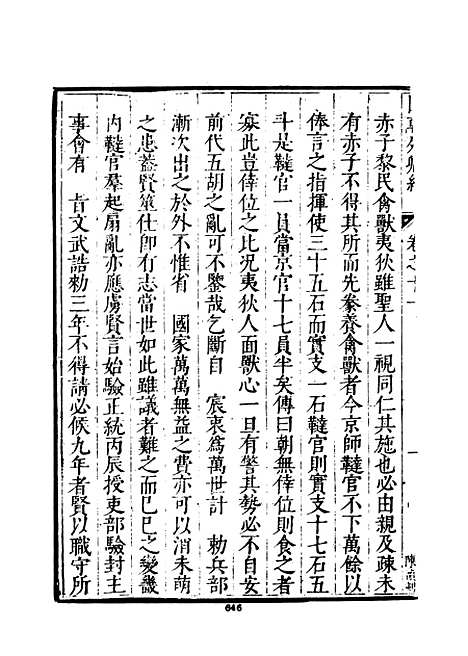 卷之十一
赤子黎民禽獸夷狄雖聖人一視同仁其施也必由親及疎未
有赤子不得其所而先豢養禽獸者今京師韃官不下萬餘以
俸言之指揮使三十五石而實支一石韃官則實支十七石五
斗是韃官一員當京官十七員半矣傳曰朝無倖位則食之者
寡此豈倖位之比況夷狄人面獸心一旦有警其勢必不自安
前代五胡之亂可不鑒哉乞斷自　宸衷爲萬世計　勅兵部
漸次出之於外不惟省　國家萬萬無益之費亦可以消未萌
之患蓋賢策仕卽有志當世如此雖議者難之而巳巳之變畿
內韃官羣起扇亂亦應虜賢言始驗正統丙辰授吏部驗封主
事會有　旨文武誥勅三年不得請必候九年者賢以職守所
646